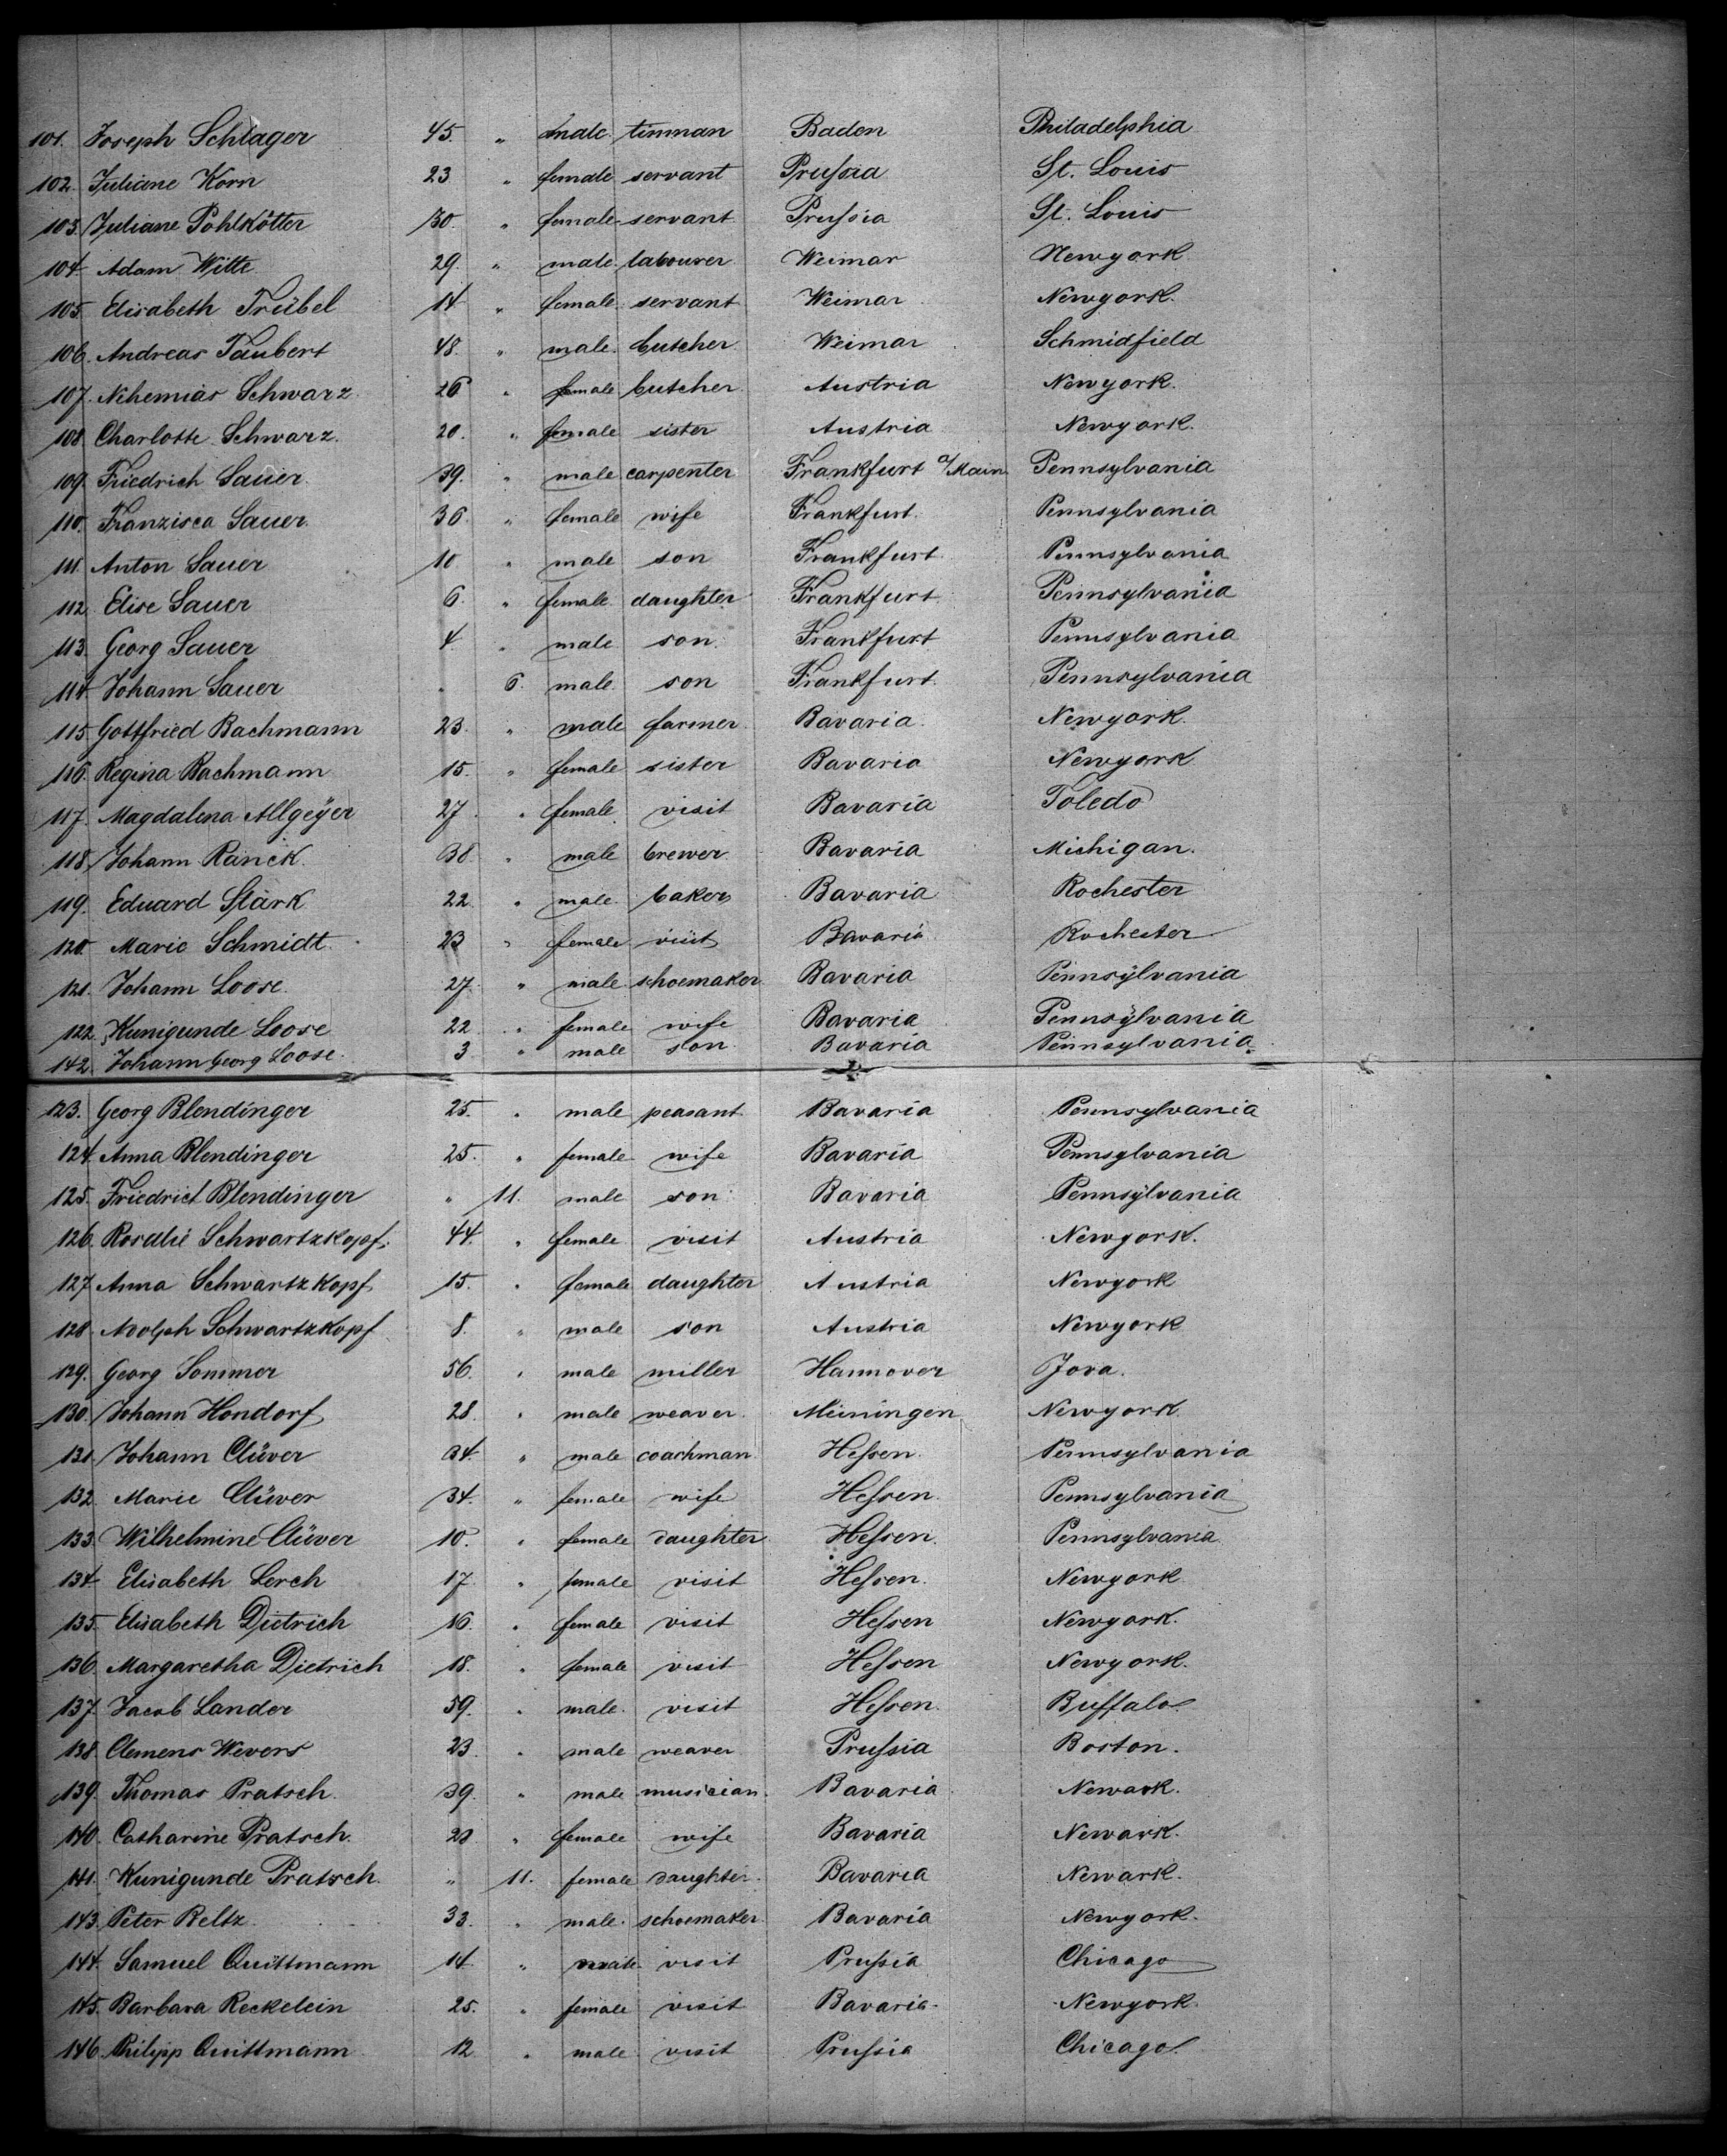 101. Joseph Schlager 45. " male tinman Baden Philadelphia
102. Juliane Korn 23 " female servant Prussia St. Louis
103. Juliane Pohlkötter 30. " female servant Prussia St. Louis
104. Adam Witte 29. " male labourer Weimar Newyork
105. Elisabeth Trübel 14 " female servant Weimar Newyork.
106. Andreas Taubert 48. " male butcher Weimar Schmidfield
107. Nehemias Schwarz 26 " female butcher Austria Newyork.
108 Charlotte Schwarz. 20. " female sister Austria Newyork.
109. Friedrich Sauer. 39. " male carpenter Frankfurt a/Main Pennsylvania
110. Franzisca Sauer. 36. " female wife Frankfurt. Pennsylvania
111. Anton Sauer 10 " male son Frankfurt. Pennsylvania
112. Elise Sauer 6. " female daughter Frankfurt Pennsylvania
113. Georg Sauer 4 " male son. Frankfurt Pennsylvania
114. Johann Sauer " 6. male son Frankfurt. Pennsylvania
115. Gottfried Bachmann 23. " male farmer Bavaria. Newyork.
116. Regina Bachmann 15. " female sister Bavaria Newyork
117. Magdalena Allgeÿer 27. " female visit Bavaria Toledo
118. Johann Ranck. 38 " male brewer. Bavaria Michigan.
119. Eduard Stark 22. " male baker Bavaria Rochester
120. Marie Schmidt. 23 " female visit Bavaria Rochester
121. Johann Loose. 27. " male schoemaker Bavaria Pennsÿlvania
122. Kunigunde Loose 22. " female wife Bavaria Pennsÿlvania
142. Johann Georg Loose. 3. " male son. Bavaria Pennsylvania.
123. Georg Blendinger 25. " male peasant Bavaria Pennsylvania
124. Anna Blendinger 25. " female wife Bavaria Pennsylvania
125. Friedrich Blendinger " 11. male son Bavaria Pennsÿlvania
126. Rosalie Schwartzkopf. 44. " female visit Austria Newyork.
127. Anna Schwartzkopf 15. " female daughter Austria Newyork
128. Adolph Schwartzkopf 8. " male son Austria Newyork
129. Georg Sommer 56. " male miller Hannover Jova.
130. Johann Hondorf 28. " male weaver. Meiningen Newyork.
131. Johann Clüver 34. " male coachman. Hessen. Pennsylvania
132. Marie Clüver 34. " female wife Hessen. Pennsylvania
133. Wilhelmine Clüver 10. " female daughter Hessen. Pennsylvania
134. Elisabeth Lerch 17. " female visit Hessen. Newyork
135. Elisabeth Dietrich 16. " female visit Hessen Newyork.
136. Margaretha Dietrich 18. " female visit Hessen Newyork.
137. Jacob Lander 59. " male. visit Hessen. Buffalo.
138. Clemens Wevers 23. " male weaver Prussia Boston.
139. Thomas Pratsch. 39. " male musician. Bavaria Newark.
140. Catharine Pratsch. " female wife Bavaria Newark.
141. Kunigunde Pratsch. " 11. female daughter. Bavaria Newark.
143. Peter Reltz. 33. " male. schoemaker. Bavaria Newyork.
144. Samuel Quittmann 14. " male visit Prussia Chicago
145. Barbara Reckelein 25. " female visit Bavaria Newyork.
146. Philipp Quittmann 12 " male visit Prussia Chicago.